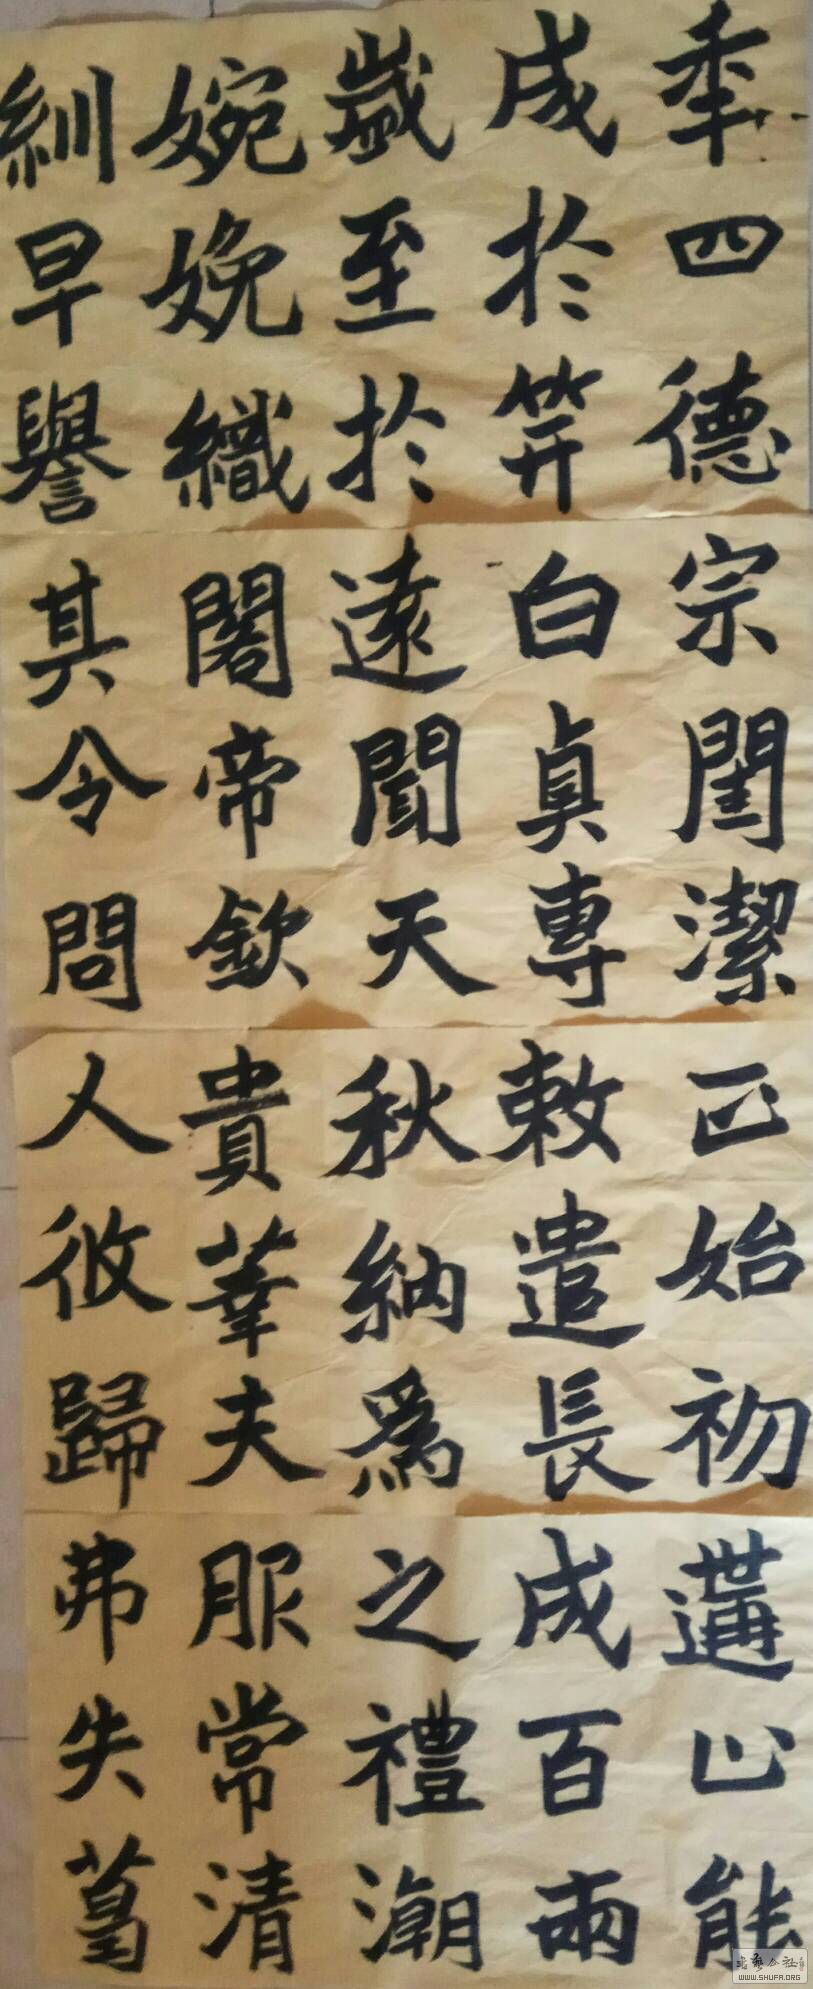 秊四德
成於笄
歲至於
婉娩織
紃早譽
宗閨潔
白貞專
遠聞天
闍帝欽
其令問
正始初
敕遣長
秋納為
貴華夫
人攸歸
遘止能
成百兩
之禮潮
服常清
弗失葛
WWW.SHUFA.ORG